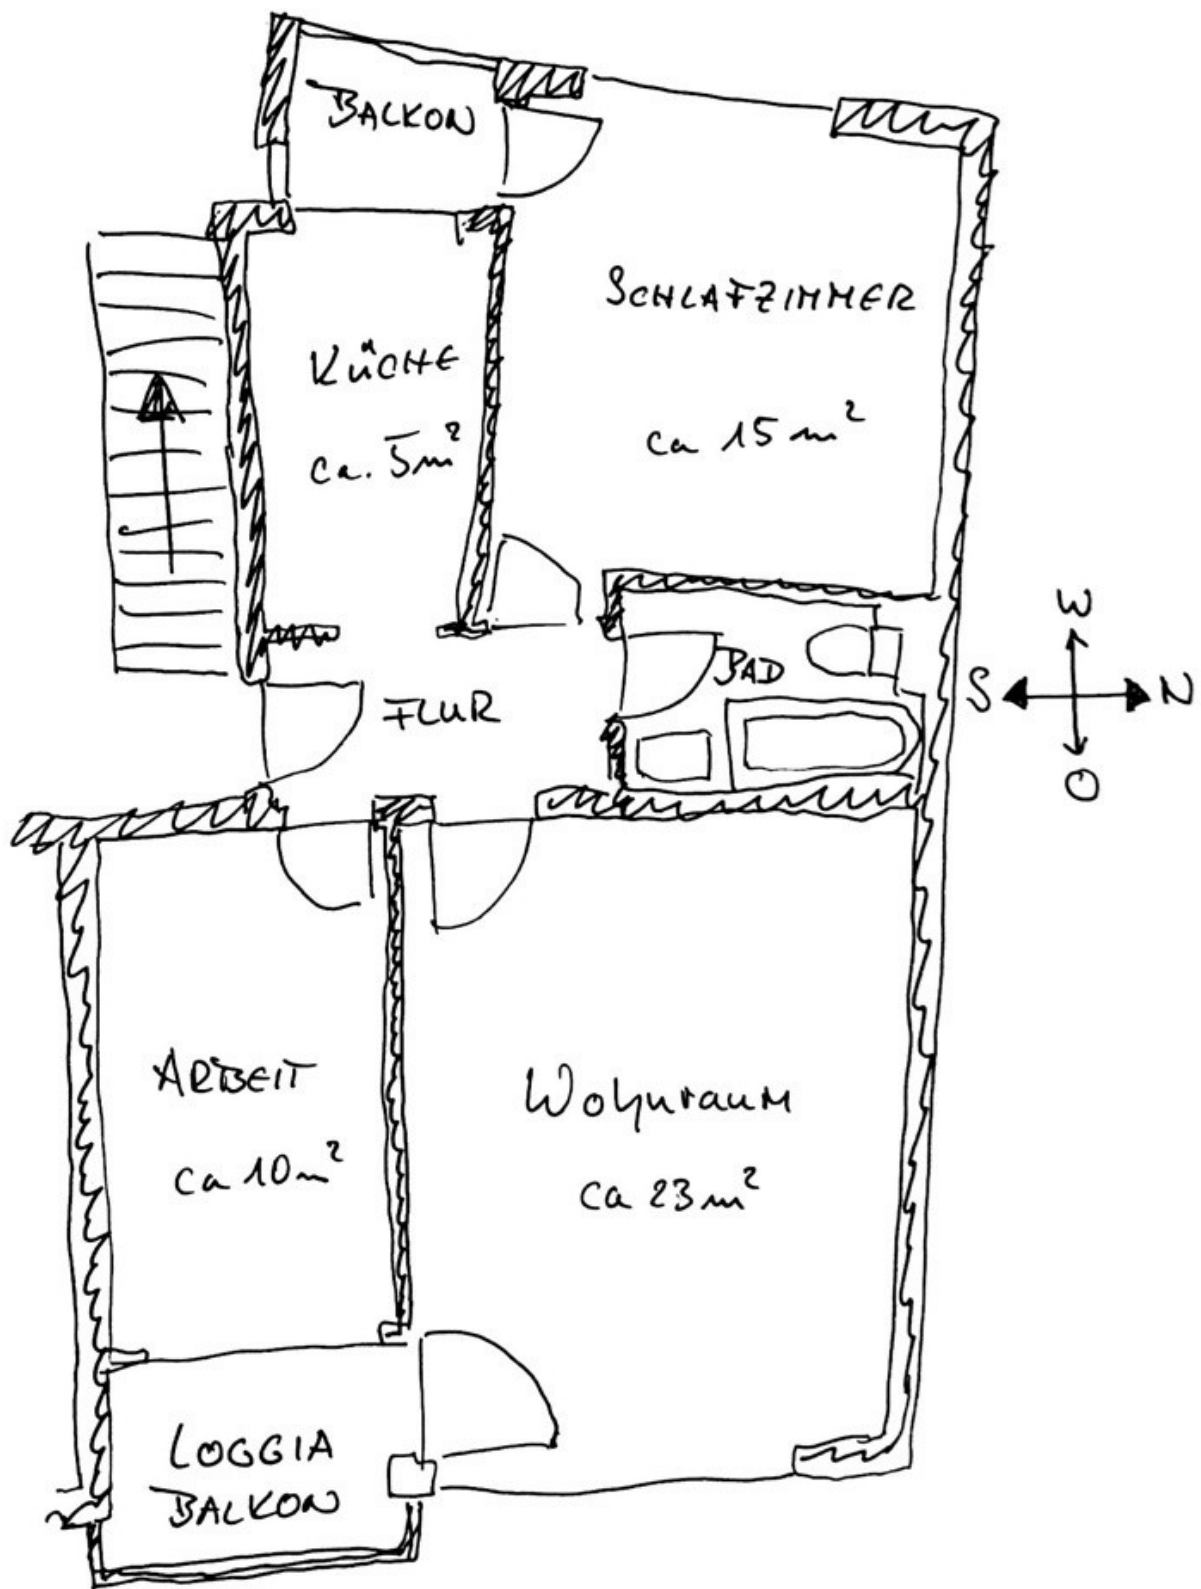 BALKON
SCHLAFZIMMER
ca 15 m²
KÜCHE
ca. 5m²
W
S
N
O
BAD
FLUR
ARBEIT
ca 10m²
Wohnraum
ca 23 m²
LOGGIA
BALKON